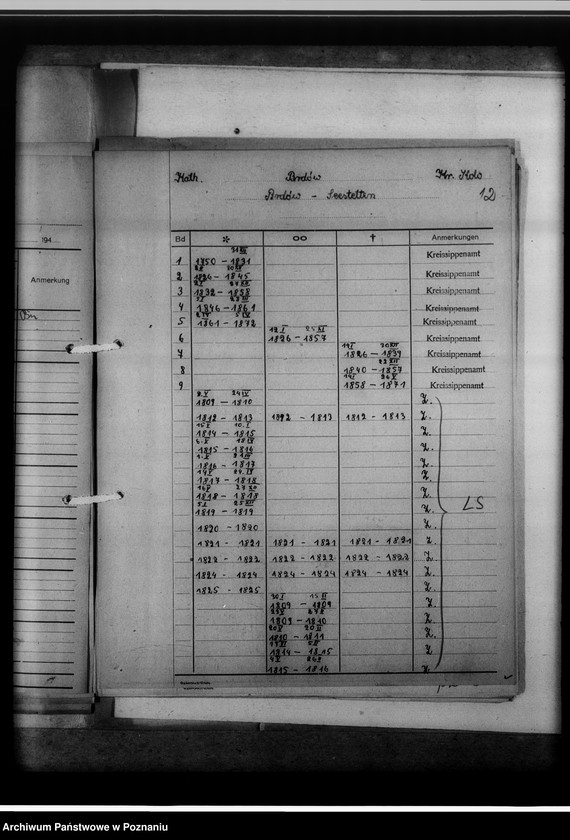 Kath. Brdów Kr. Kolo
Brdów - Seestetten 12
194
Anmerkung
Bd * ∞ † Anmerkungen
31 XII
1 1750 - 1831 Kreissippenamt
2 1826 - 1845 Kreissippenamt
3 1832 - 1858 Kreissippenamt
4 1846 - 1861 Kreissippenamt
5 1861 - 1872 Kreissippenamt
12 I 25 XI
6 1826 - 1857 Kreissippenamt
7 1826 - 1839 Kreissippenamt
22 XII
8 1840 - 1857 Kreissippenamt
9 1858 - 1871 Kreissippenamt
24 IV
1809 - 1810 Z.
1812 - 1813 1812 - 1813 1812 - 1813 Z.
15 I 10. I
1814 - 1815 Z.
1815 - 1816 Z.
1816 - 1817 Z.
1817 - 1818 Z.
1818 - 1819 Z. LS
1819 - 1819 Z.
1820 - 1820 Z.
1821 - 1821 1821 - 1821 1821 - 1821 Z.
1822 - 1822 1822 - 1822 1822 - 1822 Z.
1824 - 1824 1824 - 1824 1824 - 1824 Z.
1825 - 1825 Z.
30 I 15 II
1809 - 1809 Z.
1809 - 1810 Z.
1810 - 1811 Z.
1814 - 1815 Z.
1815 - 1816 Z.
Archiwum Państwowe w Poznaniu